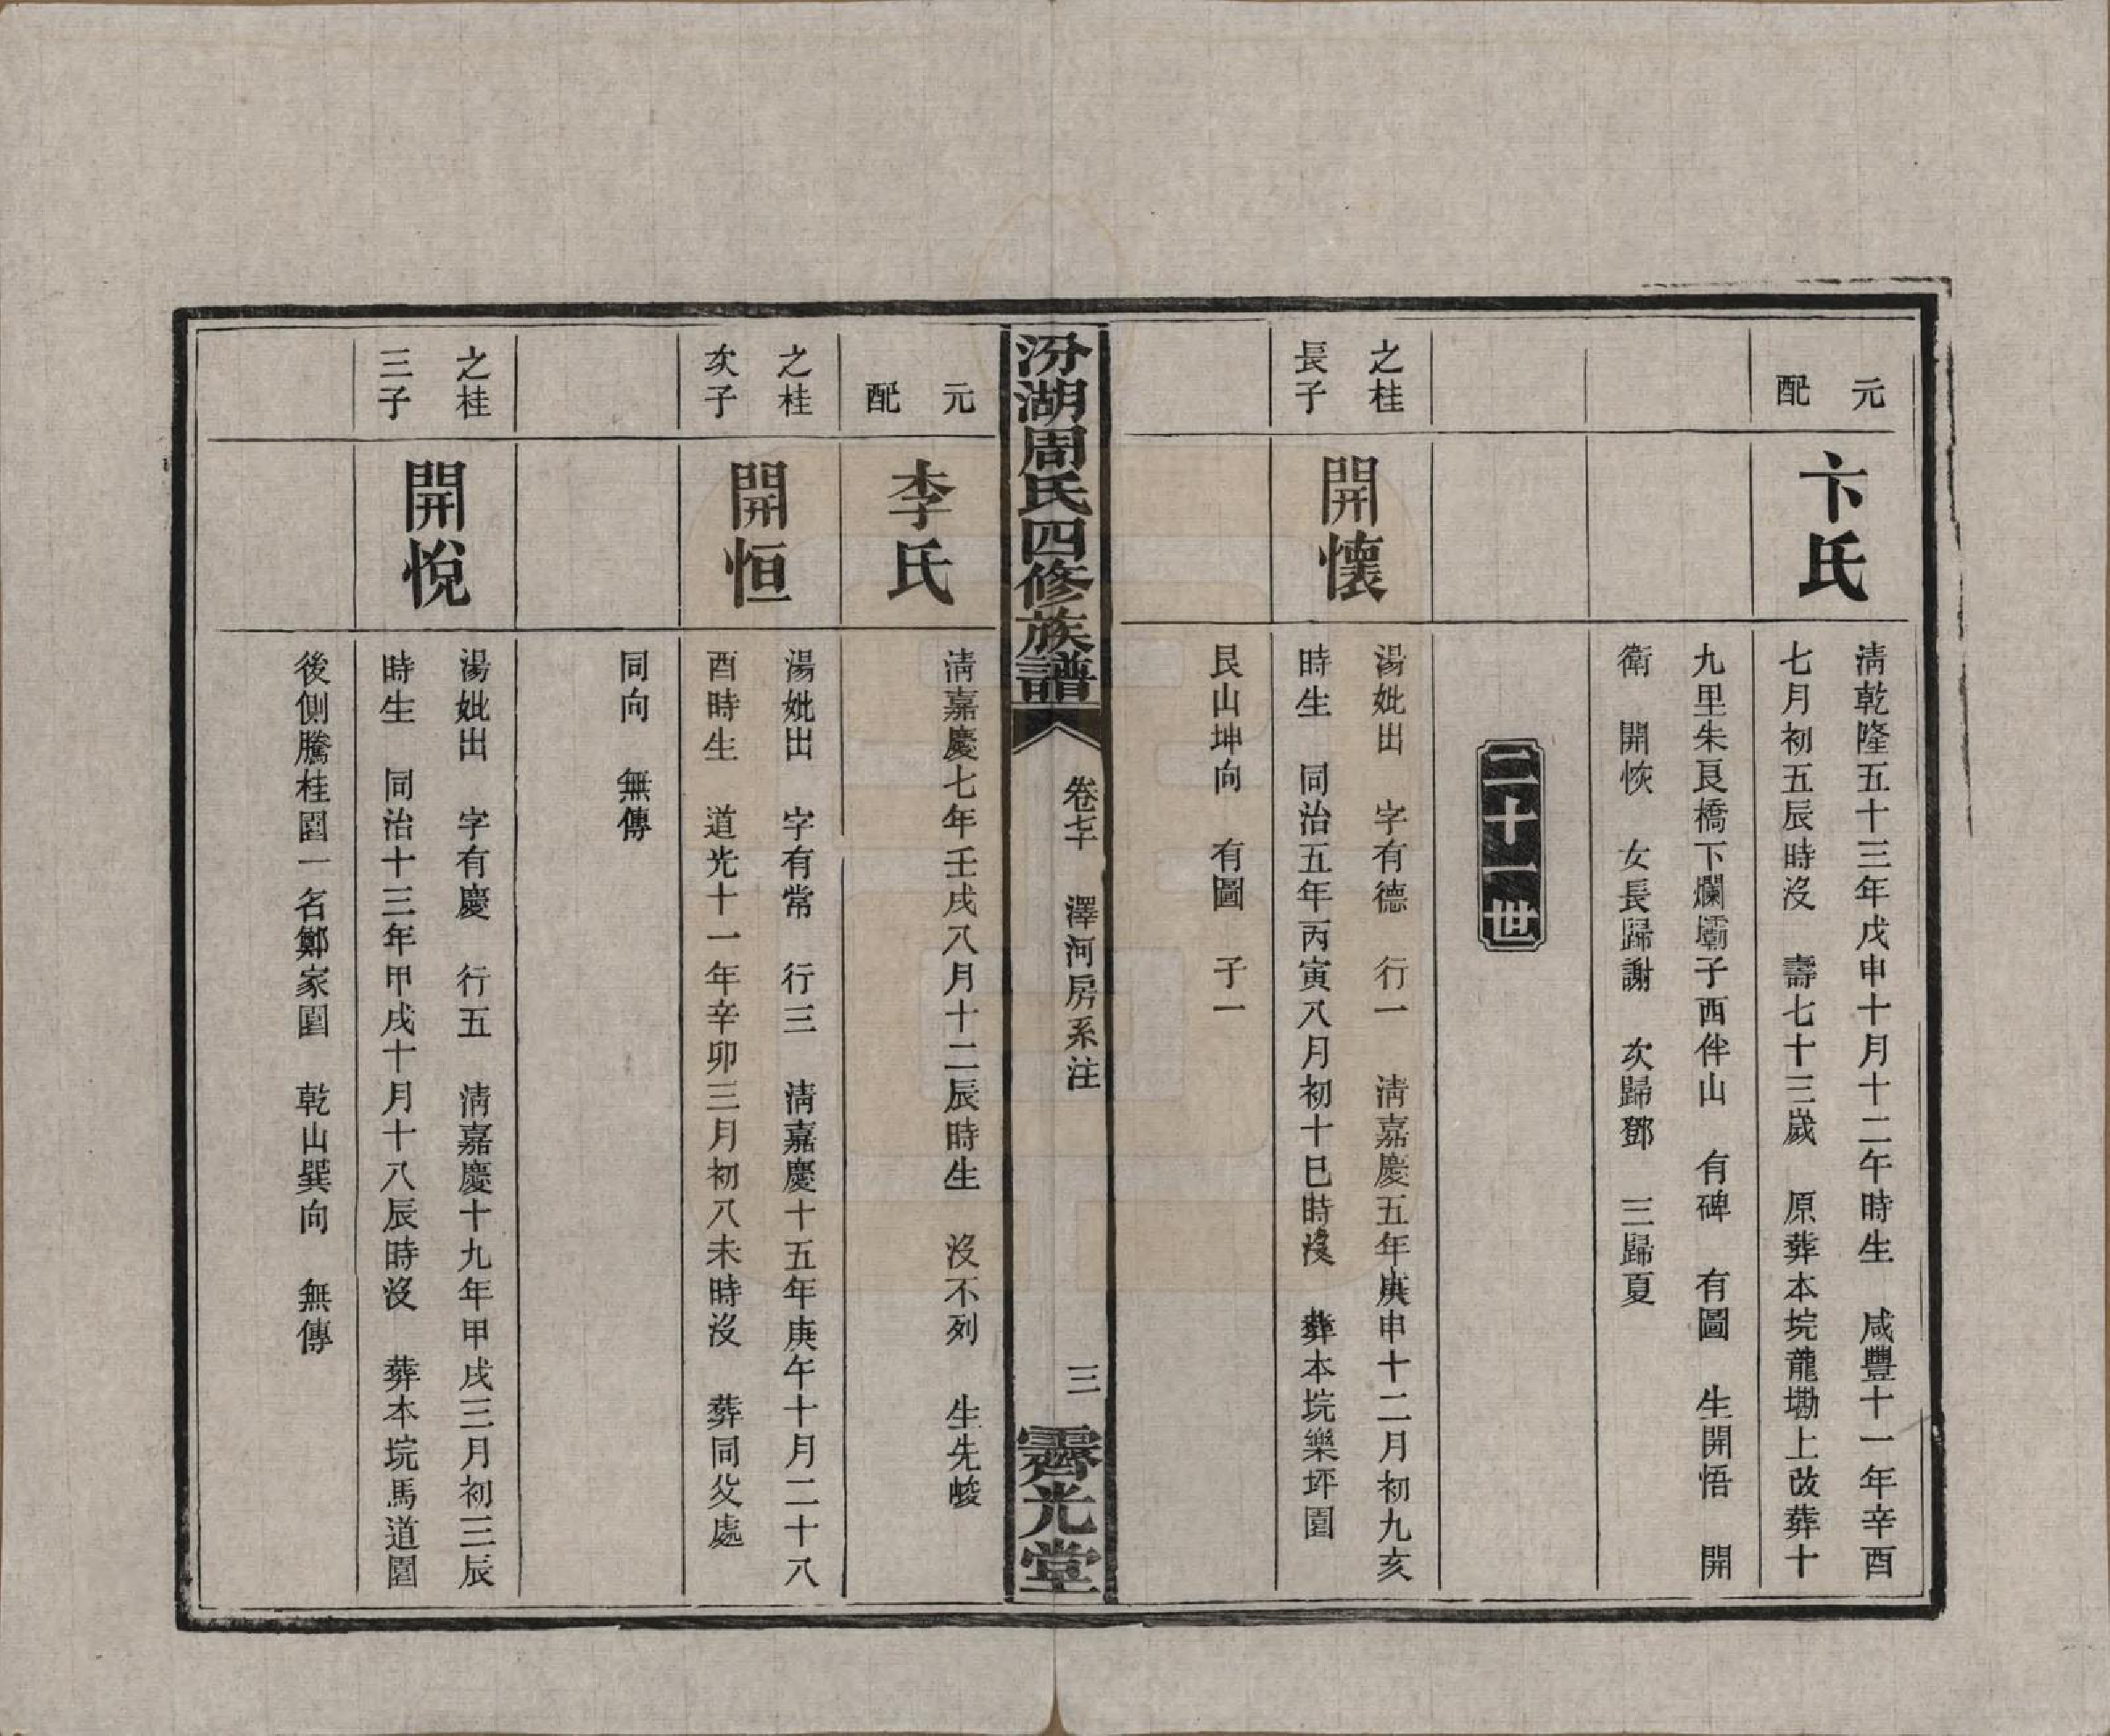 元
配
卞氏
清乾隆五十三年戊申十月十二午時生　咸豐十一年辛酉
七月初五辰時沒　壽七十三歲　原葬本垸蘢墈上改葬十
九里朱良橋下爛壩子西伴山　有碑　有圖　生開悟　開
衛　開恢　女長歸謝　次歸鄧　三歸夏
二十一世
之桂
長子
開懷
湯妣出　字有德　行一　清嘉慶五年庚申十二月初九亥
時生　同治五年丙寅八月初十巳時沒　葬本垸樂坪園
艮山坤向　有圖　子一
汾湖周氏四修族譜
卷七十　澤河房系注
三
霽光堂
元
配
李氏
清嘉慶七年壬戌八月十二辰時生　沒不列　生先峻
之桂
次子
開恒
湯妣出　字有常　行三　清嘉慶十五年庚午十月二十八
酉時生　道光十一年辛卯三月初八未時沒　葬同父處
同向　無傳
之桂
三子
開悅
湯妣出　字有慶　行五　清嘉慶十九年甲戌三月初三辰
時生　同治十三年甲戌十月十八辰時沒　葬本垸馬道園
後側騰桂園一名鄭家園　乾山巽向　無傳